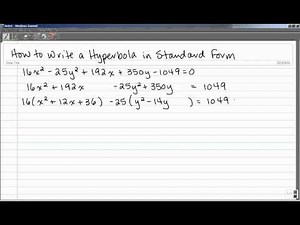 How to Write a Hyperbola in Standard Form
16x² - 25y² + 192x + 350y - 1049 = 0
16x² + 192x - 25y² + 350y = 1049
16(x² + 12x + 36) - 25(y² - 14y ) = 1049